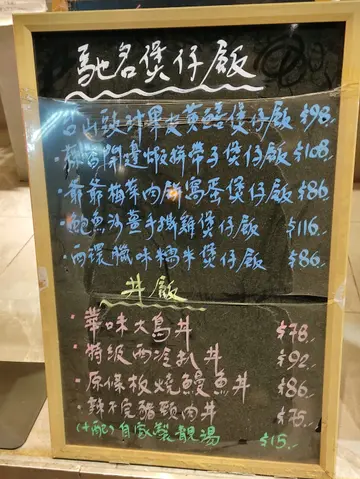 馳名煲仔飯
台山頭抽果皮黃鱔煲仔飯 $98.
開邊蝦拼帶子煲仔飯 $108.
·爺爺梅菜肉餅窩蛋煲仔飯 $86
·鮑魚沙薑手撕雞煲仔飯 $116.
·西環臘味糯米煲仔飯 $86.
丼飯
·華味大鳥丼 $78.
·特級西冷扒丼 $92.
·原條板燒鰻魚丼 $86
·辣不完豬頸肉丼 $75.
(+配)自家製靚湯 $15.